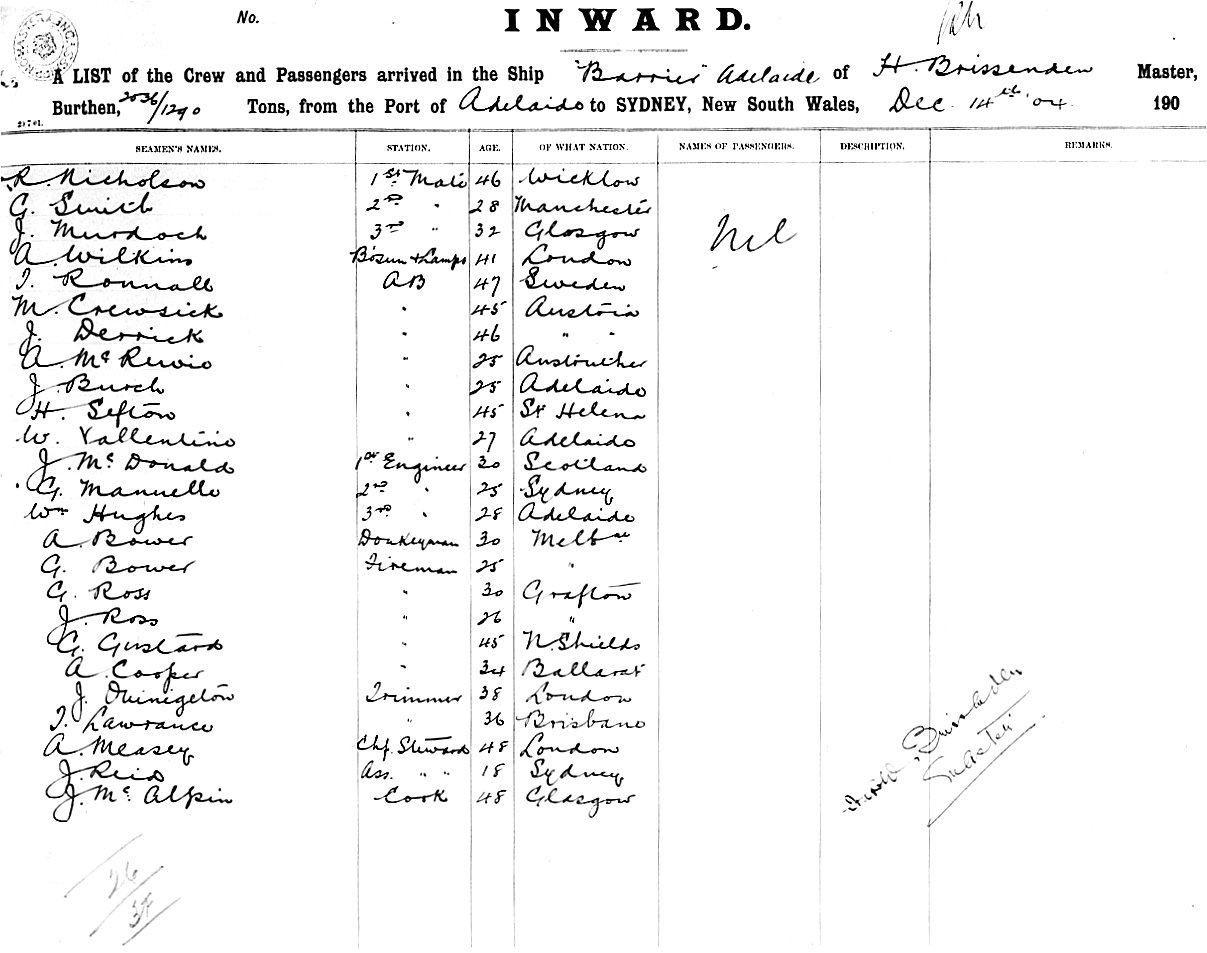 No.
INWARD.
A LIST of the Crew and Passengers arrived in the Ship "Barrier" Adelaide of H. Brissenden Master,
Burthen, 2036/1290 Tons, from the Port of Adelaide to SYDNEY, New South Wales, Dec. 14th '04 190
SEAMEN'S NAMES. STATION. AGE. OF WHAT NATION. NAMES OF PASSENGERS. DESCRIPTION. REMARKS.
R. Nicholson 1st Mate 46 Wicklow
G. Smith 2nd " 28 Manchester
J. Murdoch 3rd " 32 Glasgow
Nil
A. Wilkins Bosun & Lamps 41 London
T. Ronnall AB 47 Sweden
M. Crewsick " 45 Austria
J. Derrick " 46 " "
A. Mc " 25 Anstruther
J. Burch " 25 Adelaide
H. Sefton " 45 St Helena
W. Vallentine " 27 Adelaide
J. Mc Donald 1st Engineer 30 Scotland
G. Manuelle 2nd " 25 Sydney
Wm Hughes 3rd " 28 Adelaide
A. Bower Donkeyman 30 Melbne
G. Bower Fireman 25 "
G. Ross " 30 Grafton
J. Ross " 26 "
G. Gustard " 45 N. Shields
A. Cooper " 34 Ballarat
J. Trimmer 38 London
T. Lawrance " 36 Brisbane
A. Measey Chf. Steward 48 London
J. Reid Ass. " " 18 Sydney
J. Mc Alpin Cook 48 Glasgow
Brissenden
Master
26